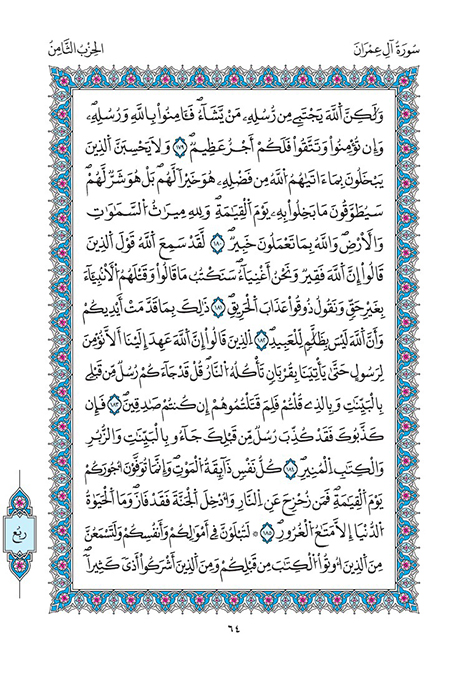 سُورَةُ آلِ عِمْرَانَ
الحِزْبُ الثَّامِنُ
وَلَٰكِنَّ اَ۬للَّهَ يَجْتَبِے مِن رُّسُلِهِۦ مَنْ يَّشَآءُۖ فَـَٔامِنُواْ بِاللَّهِ وَرُسُلِهِۦۖ
وَإِن تُؤْمِنُواْ وَتَتَّقُواْ فَلَكُمْ أَجْرٌ عَظِيمٌۖ ١٧٩ وَلَا يَحْسِبَنَّ اَ۬لذِينَ
يَبْخَلُونَ بِمَآ ءَاتَيٰهُمُ اُ۬للَّهُ مِن فَضْلِهِۦ هُوَ خَيْراٗ لَّهُمۖ بَلْ هُوَ شَرّٞ لَّهُمْۖ
سَيُطَوَّقُونَ مَا بَخِلُواْ بِهِۦ يَوْمَ اَ۬لْقِيَٰمَةِۖ وَلِلهِ مِيرَٰثُ اُ۬لسَّمَٰوَٰتِ
وَالَارْضِۖ وَاللَّهُ بِمَا تَعْمَلُونَ خَبِيرٞۖ ١٨٠ لَّقَدْ سَمِعَ اَ۬للَّهُ قَوْلَ اَ۬لذِينَ
قَالُوٓاْ إِنَّ اَ۬للَّهَ فَقِيرٞ وَنَحْنُ أَغْنِيَآءُۖ سَنَكْتُبُ مَا قَالُواْ وَقَتْلَهُمُ اُ۬لَانۢبِـَٔآءَ
بِغَيْرِ حَقّٖ وَنَقُولُ ذُوقُواْ عَذَابَ اَ۬لْحَرِيقِۖ ١٨١ ذَٰلِكَ بِمَا قَدَّمَتَ اَيْدِيكُمْ
وَأَنَّ اَ۬للَّهَ لَيْسَ بِظَلَّٰمٖ لِّلْعَبِيدِۖ ١٨٢ اِ۬لذِينَ قَالُوٓاْ إِنَّ اَ۬للَّهَ عَهِدَ إِلَيْنَآ أَلَّا نُؤْمِنَ
لِرَسُولٍ حَتَّىٰ يَأْتِيَنَا بِقُرْبَانٖ تَأْكُلُهُ اُ۬لنَّارُۖ قُلْ قَدْ جَآءَكُمْ رُسُلٞ مِّن قَبْلِے
بِالْبَيِّنَٰتِ وَبِالذِے قُلْتُمْ فَلِمَ قَتَلْتُمُوهُمْ إِن كُنتُمْ صَٰدِقِينَۖ ١٨٣ فَإِن
كَذَّبُوكَ فَقَدْ كُذِّبَ رُسُلٞ مِّن قَبْلِكَ جَآءُو بِالْبَيِّنَٰتِ وَالزُّبُرِ
وَالْكِتَٰبِ اِ۬لْمُنِيرِۖ ١٨٤ كُلُّ نَفْسٖ ذَآئِقَةُ اُ۬لْمَوْتِۖ وَإِنَّمَا تُوَفَّوْنَ أُجُورَكُمْ
يَوْمَ اَ۬لْقِيَٰمَةِۖ فَمَن زُحْزِحَ عَنِ اِ۬لنَّارِ وَأُدْخِلَ اَ۬لْجَنَّةَ فَقَدْ فَازَۖ وَمَا اَ۬لْحَيَوٰةُ
اُ۬لدُّنْيَآ إِلَّا مَتَٰعُ اُ۬لْغُرُورِۖ ١٨٥ ۞ لَتُبْلَوُنَّ فِےٓ أَمْوَٰلِكُمْ وَأَنفُسِكُمْ وَلَتَسْمَعُنَّ
مِنَ اَ۬لذِينَ أُوتُواْ اُ۬لْكِتَٰبَ مِن قَبْلِكُمْ وَمِنَ اَ۬لذِينَ أَشْرَكُوٓاْ أَذىٗ كَثِيراٗۖ
ربع
٦٤